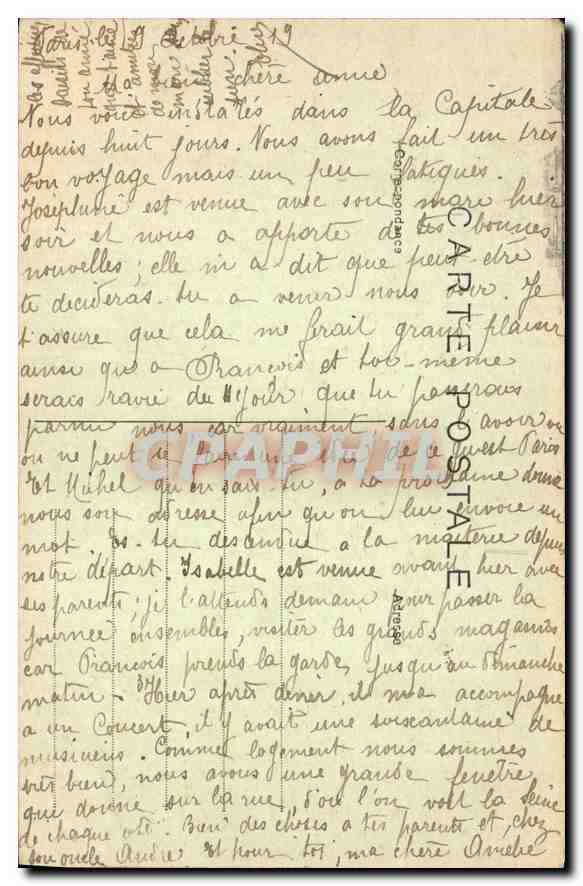 Paris le 9 Octobre 19
chère amie
Nous voici installés dans la Capitale
depuis huit jours. Nous avons fait un très
bon voyage mais un peu fatigués.
Joséphine est venue avec son mare hier
soir et nous a apporté de tes bonnes
nouvelles; elle m'a dit que peut être
te decideras-tu a venir nous voir. Je
t'assure que cela me ferait grand plaisir
ainsi qu'a François et toi-même
serais ravie du jour que tu passerais
parmi nous car vraiment sans avoir vu
on ne peut se faire une idée de ce qu'est Paris
Et Michel qu'en sais-tu, a la prochaine donne
nous son adresse afin qu'on lui envoie un
mot. Es-tu descendue a la depuis
notre départ. Isabelle est venue avant hier avec
ses parents; je l'attends demain pour passer la
journée ensembles, visiter les grands magasins
car François prends la garde jusqu'au dimanche
matin. Hier après diner, il m'a accompagné
a un Concert, il y avait une soixantaine de
musiciens. Comme logement nous sommes
très bien, nous avons une grande fenêtre
qui donne sur la rue, d'où l'on voit la Seine
de chaque côté. Bien des choses a tes parents et, chez
ton oncle André. Et pour toi, ma chère Amélie
CARTE POSTALE
Correspondance
Adresse
CARPHIL